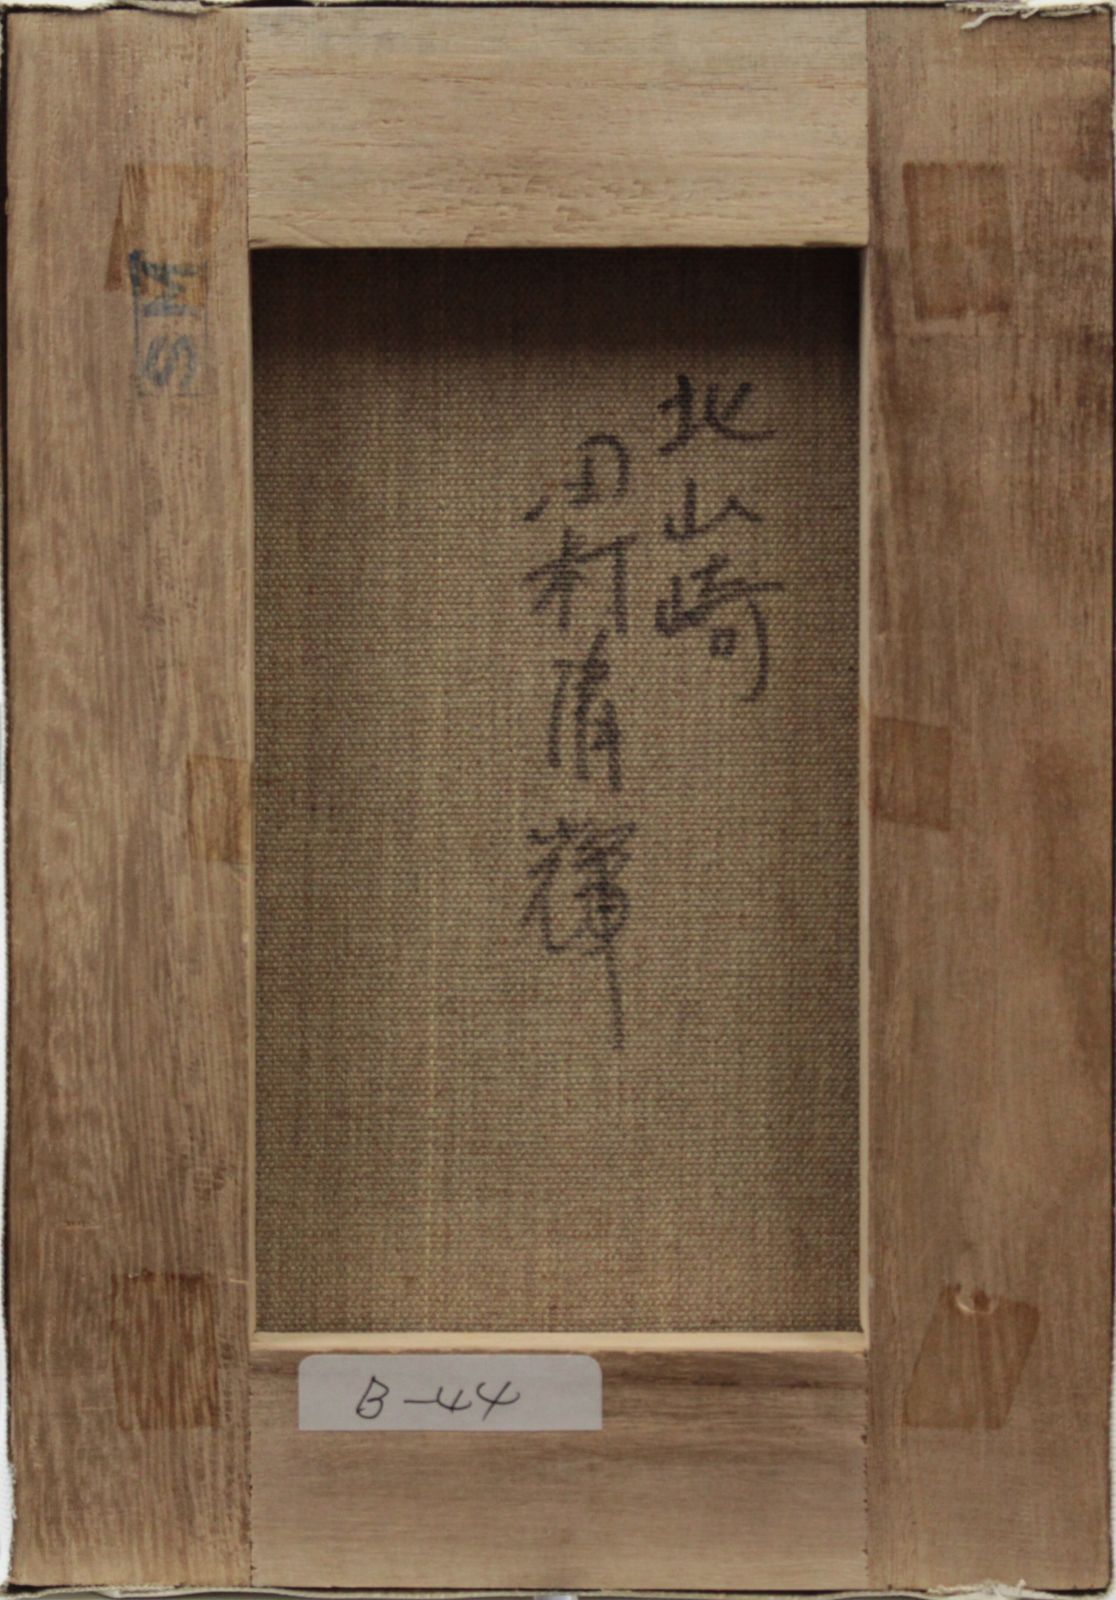 SM
北山崎
田村清輝
B-44